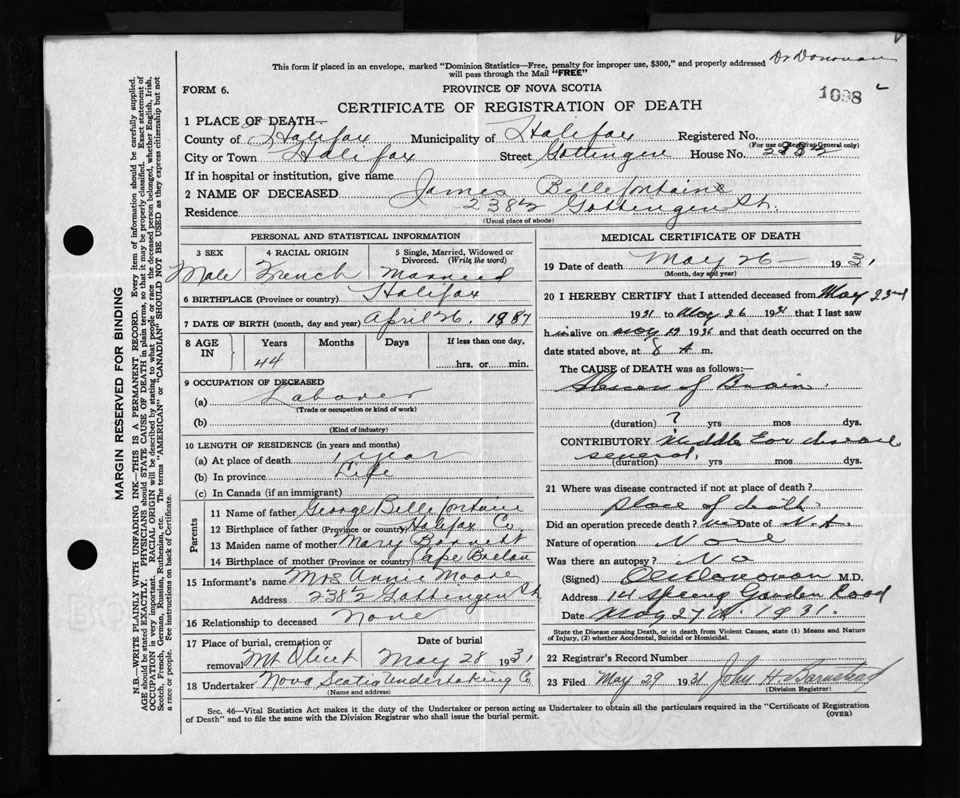 This form if placed in an envelope, marked "Dominion Statistics—Free, penalty for improper use, $300," and properly addressed
will pass through the Mail "FREE"
Dr Donovan
FORM 6.
PROVINCE OF NOVA SCOTIA
1098
CERTIFICATE OF REGISTRATION OF DEATH
1 PLACE OF DEATH—
County of Halifax Municipality of Halifax Registered No.
(For use of Registrar General only)
City or Town Halifax Street Gottingen House No. 238½
If in hospital or institution, give name
2 NAME OF DECEASED James Bellefontaine
Residence 238½ Gottingen St.
(Usual place of abode)
PERSONAL AND STATISTICAL INFORMATION
3 SEX 4 RACIAL ORIGIN 5 Single, Married, Widowed or Divorced. (Write the word)
Male French Married
6 BIRTHPLACE (Province or country) Halifax
7 DATE OF BIRTH (month, day and year) April 26 1887
8 AGE IN Years Months Days If less than one day,
44 hrs. or min.
9 OCCUPATION OF DECEASED
(a) Laborer
(Trade or occupation or kind of work)
(b)
(Kind of industry)
10 LENGTH OF RESIDENCE (in years and months)
(a) At place of death 1 year
(b) In province Life
(c) In Canada (if an immigrant)
Parents
11 Name of father George Bellefontaine
12 Birthplace of father (Province or country) Halifax Co.
13 Maiden name of mother Mary
14 Birthplace of mother (Province or country) Cape Breton
15 Informant's name Mrs Annie Moore
Address 238½ Gottingen St.
16 Relationship to deceased None
17 Place of burial, cremation or removal Mt Olivet Date of burial May 28 1931
18 Undertaker Nova Scotia Undertaking Co
(Name and address)
MEDICAL CERTIFICATE OF DEATH
19 Date of death May 26 1931
(Month, day and year)
20 I HEREBY CERTIFY that I attended deceased from May 23rd
1931 to May 26 1931 that I last saw
him alive on May 1931 and that death occurred on the
date stated above, at 8 A m.
The CAUSE of DEATH was as follows:—
Abscess of Brain
(duration) ? yrs mos dys.
CONTRIBUTORY Middle Ear disease
several (duration) yrs mos dys.
21 Where was disease contracted if not at place of death?
place of death
Did an operation precede death? No Date of
Nature of operation None
Was there an autopsy? No
(Signed) Donovan M.D.
Address 14 Spring Garden Road
Date May 27th 1931.
State the Disease causing Death, or in death from Violent Causes, state (1) Means and Nature of Injury, (2) whether Accidental, Suicidal or Homicidal.
22 Registrar's Record Number
23 Filed May 29 1931 John H. Barnstead
(Division Registrar)
Sec. 46—Vital Statistics Act makes it the duty of the Undertaker or person acting as Undertaker to obtain all the particulars required in the "Certificate of Registration
of Death" and to file the same with the Division Registrar who shall issue the burial permit.
(OVER)
MARGIN RESERVED FOR BINDING
N.B.—WRITE PLAINLY WITH UNFADING INK—THIS IS A PERMANENT RECORD. Every item of information should be carefully supplied.
AGE should be stated EXACTLY. PHYSICIANS should STATE CAUSE OF DEATH in plain terms, so that it may be properly classified. Exact statement of
OCCUPATION is very important. RACIAL ORIGIN will be described by stating to what people or race the deceased person belonged, whether English, Irish,
Scotch, French, German, Russian, Ruthenian, etc. The terms "AMERICAN" or "CANADIAN" SHOULD NOT BE USED as they express citizenship but not
a race or people. See instructions on back of Certificate.